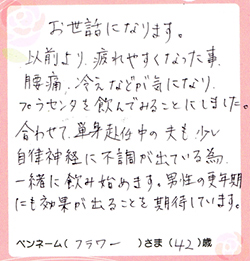 お世話になります。
以前より、疲れやすくなった事、
腰痛、冷えなどが気になり、
プラセンタを飲んでみることにしました。
合わせて、単身赴任中の夫も少し
自律神経に不調が出ている為、
一緒に飲み始めます。男性の更年期
にも効果が出ることを期待しています。
ペンネーム( フラワー )さま(42)歳